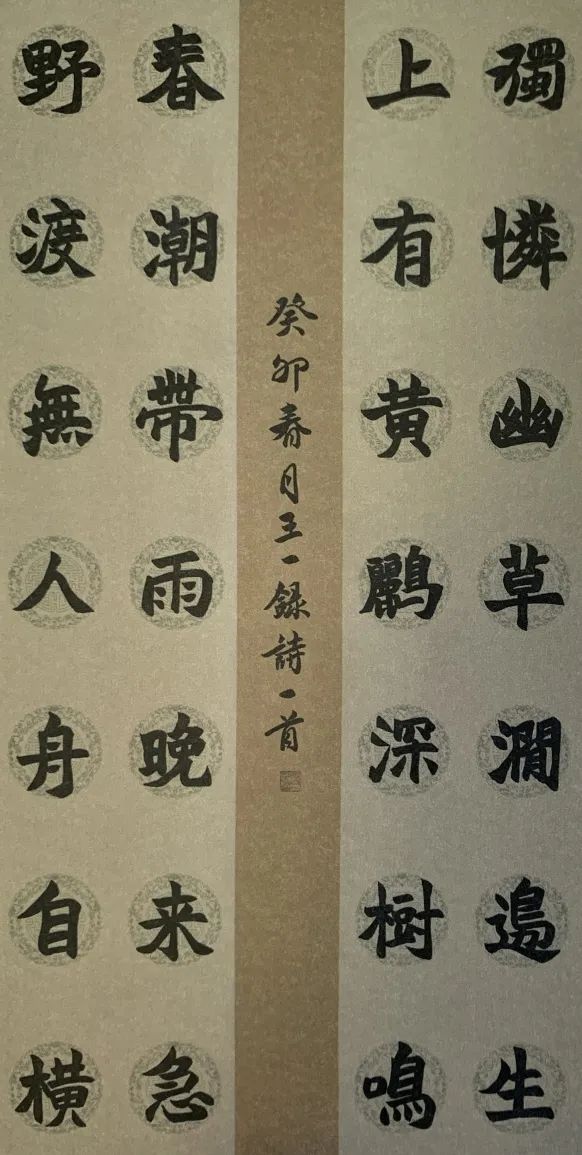 獨憐幽草澗邊生
上有黄鸝深樹鳴
春潮帶雨晚来急
野渡無人舟自横
癸卯春月王一録詩一首